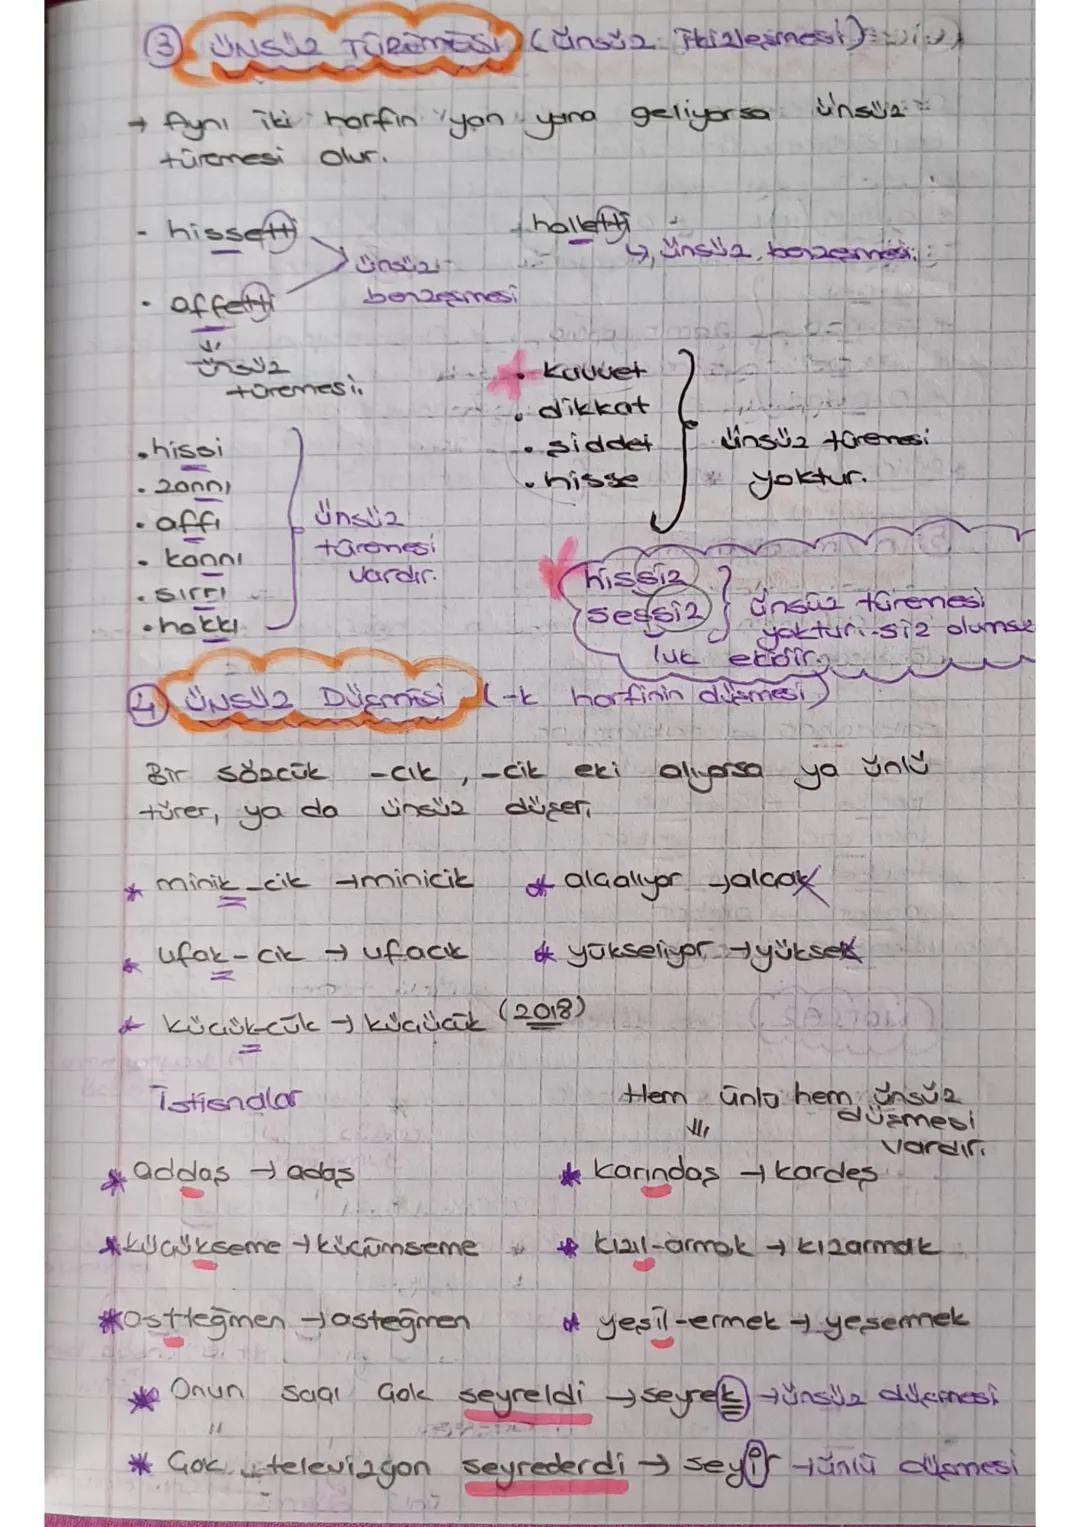 3 ÜNSÜZ TÜREMESİ (ünsüz ikizleşmesi)
→ Aynı iki harfin yan yana geliyorsa ünsüz
türemesi olur.
- hissetti
• affetti
ünsüz
benzeşmesi
ünsüz
türemesi.
halletti
↳ ünsüz benzeşmesi.
• hissi
• zannı
• affı
• kannı
• sırrı
• hakkı
ünsüz
türemesi
vardır.
• kuvvet
• dikkat
• şiddet
• hisse
ünsüz türemesi
yoktur.
hissiz
sessiz
ünsüz türemesi
yoktur. -siz olumsuz
luk ekidir.
4 ÜNSÜZ DÜŞMESİ (-k harfinin düşmesi)
Bir sözcük -cık, -cik eki alıyorsa ya ünlü
türer, ya da ünsüz düşer.
* minik-cik → minicik
* alçalıyor → alçak
* ufak-cık → ufacık
* yükseliyor → yüksek
* küçük-cük → küçücük (2018)
İstisnalar
Hem ünlü hem ünsüz
düşmesi
vardır.
* addaş → adaş
* karındaş → kardeş
* küçükseme → küçümseme
* kızıl-armak → kızarmak
* astteğmen → asteğmen
* yeşil-ermek → yeşermek
* Onun saçı çok seyreldi → seyrek → ünsüz düşmesi
* Çok televizyon seyrederdi → seyir → ünlü düşmesi